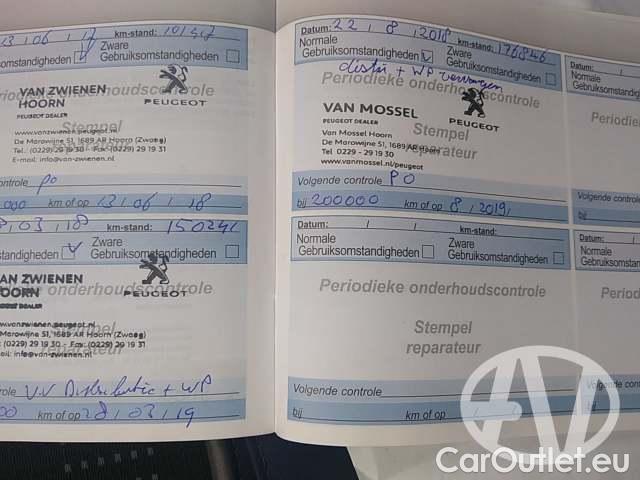 13 / 06 / 17 km-stand:
Zware
Gebruiksomstandigheden
VAN ZWIENEN
HOORN
PEUGEOT DEALER
PEUGEOT
www.vanzwienen.peugeot.nl
De Marowijne 51, 1689 AR Hoorn (Zwaag)
Tel. (0229) 29 19 30 - Fax (0229) 29 19 31
E-mail: info@van-zwienen.nl
onderhoudscontrole
Stempel
reparateur
PO
km of op 13 / 06 / 18
03 / 18 km-stand:
Zware
Gebruiksomstandigheden
AN ZWIENEN
HOORN
PEUGEOT
onderhoudscontrole
Marowijne 51, 1689 AR Hoorn (Zwaag)
(0229) 29 19 30 - Fax (0229) 29 19 31
info@van-zwienen.nl
Stempel
reparateur
V.V Distributie + WP
km of op 28 / 03 / 19
Datum: 22 / 8 / 2018 km-stand: 176846
Normale
Gebruiksomstandigheden
Zware
Gebruiksomstandigheden
distri + WP vervangen
Periodieke onderhoudscontrole
VAN MOSSEL
PEUGEOT DEALER
PEUGEOT
Van Mossel Hoorn
De Marowijne 51, 1689 AR Hoorn
Tel 0229 - 29 19 30
www.vanmossel.nl/peugeot
Stempel
reparateur
Volgende controle PO
bij 200000 km of op 8 / 2019
Datum: / / km-stand:
Normale
Gebruiksomstandigheden
Zware
Gebruiksomstandigheden
Periodieke onderhoudscontrole
Stempel
reparateur
Volgende controle
bij km of op / /
Datum:
Normale
Gebruiksomst
Periodie
Volgende contro
bij
Datum: /
Normale
Gebruiksomst
Period
Volgende
bij
CarOutlet.eu